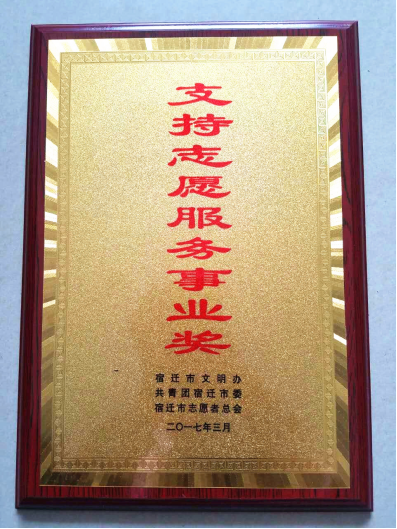 支持志愿服务事业奖
宿迁市文明办
共青团宿迁市委
宿迁市志愿者总会
二〇一七年三月